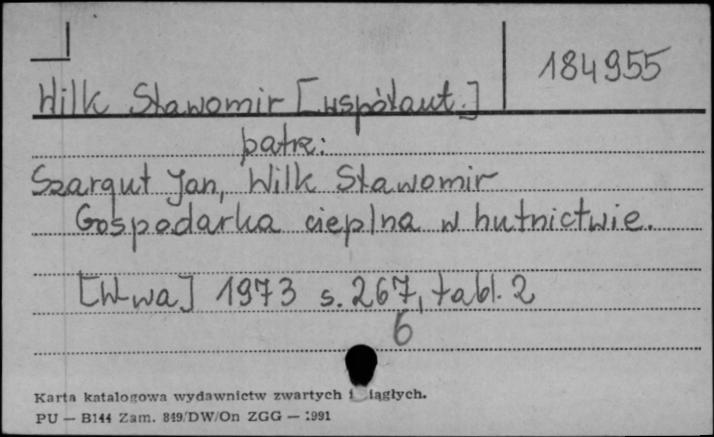 184955
Wilk Sławomir [współaut.]
patrz:
Szargut Jan, Wilk Sławomir
Gospodarka cieplna w hutnictwie.
[W-wa] 1973 s. 267, tabl. 2
6
Karta katalogowa wydawnictw zwartych i iągłych.
PU — B144 Zam. 849/DW/On ZGG — 1991